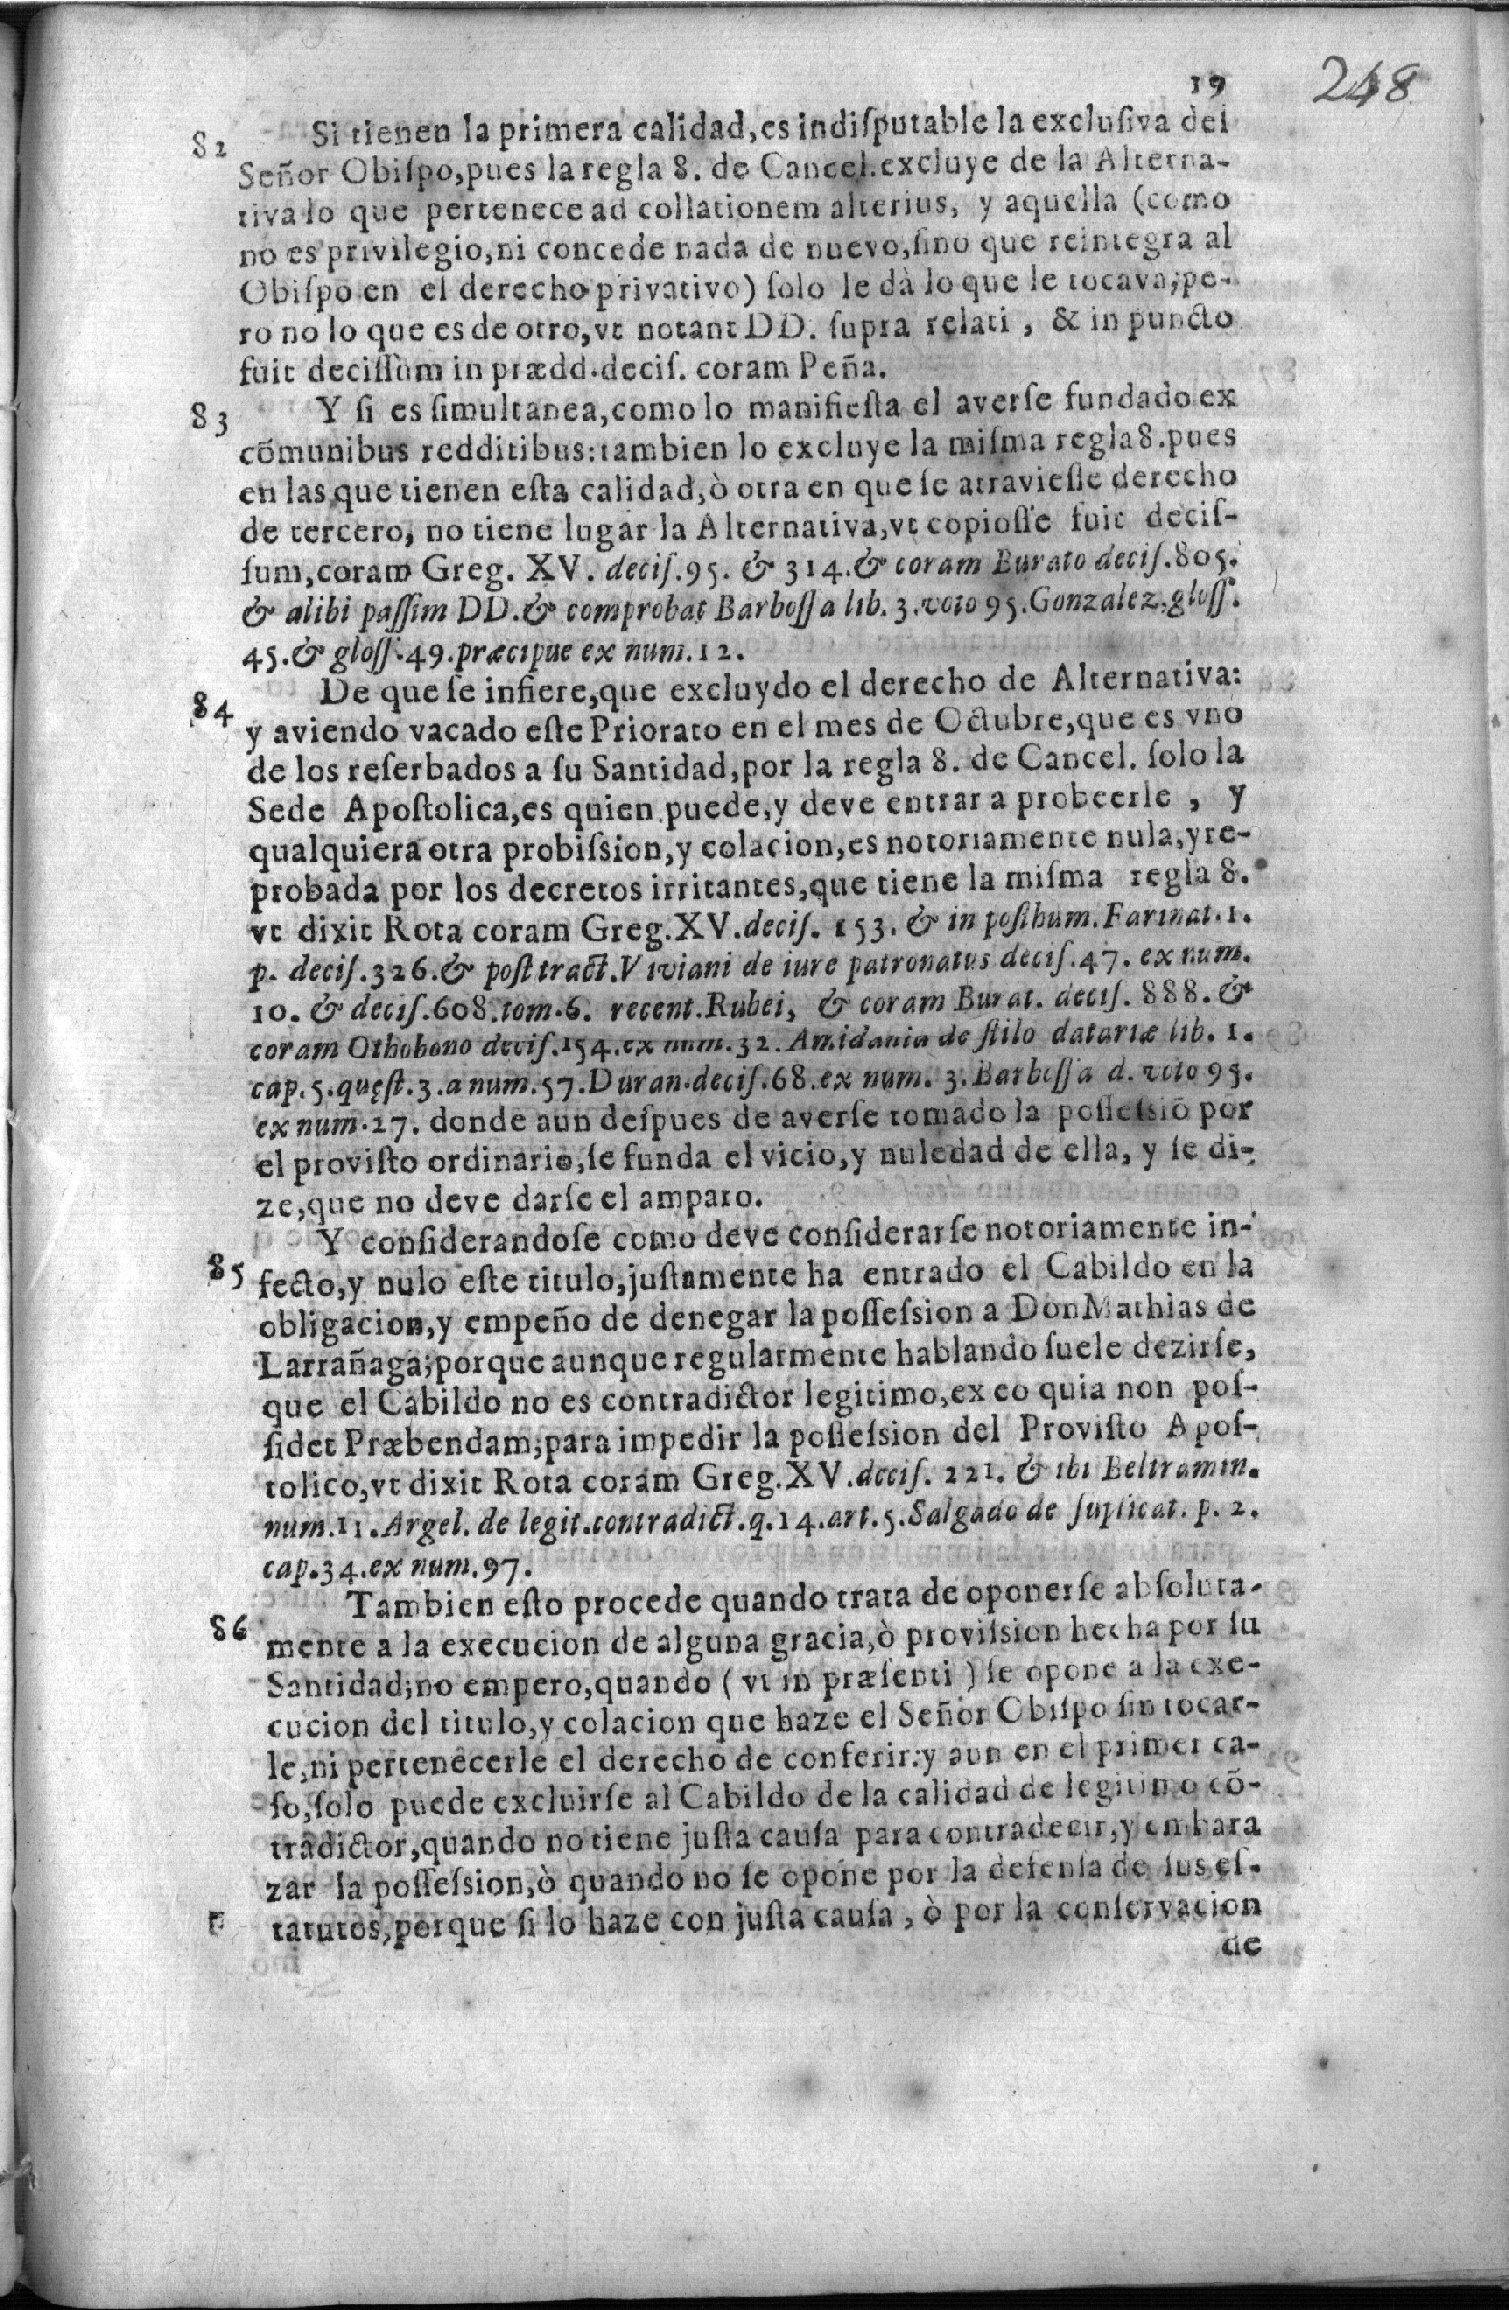 19 248
82 Si tienen la primera calidad,es indisputable la exclusiva del
Señor Obiſpo,pues la regla 8. de Cancel.excluye de la Alterna-
tiva lo que pertenece ad collationem alterius, y aquella (como
no es privilegio,ni concede nada de nuevo,ſino que reintegra al
Obiſpo en el derecho privativo) ſolo le dà lo que le tocava;pe-
ro no lo que es de otro,vt notant DD. ſupra relati , & in puncto
fuit deciſſum in prædd.deciſ. coram Peña.
83 Y ſi es ſimultanea,como lo manifieſta el averſe fundado ex
cõmunibus redditibus:tambien lo excluye la miſma regla 8.pues
en las que tienen eſta calidad,ò otra en que ſe atravieſſe derecho
de tercero, no tiene lugar la Alternativa,vt copioſſe fuit deciſ-
ſum,coram Greg. XV. deciſ.95. & 314.& coram Burato deciſ.805.
& alibi paſſim DD.& comprobat Barboſſa lib. 3.voto 95.Gonzalez,gloſſ.
45.& gloſſ.49.præcipue ex num.12.
84 De que ſe infiere,que excluydo el derecho de Alternativa:
y aviendo vacado eſte Priorato en el mes de Octubre,que es vno
de los reſerbados a ſu Santidad,por la regla 8. de Cancel. ſolo la
Sede Apoſtolica,es quien puede,y deve entrar a probeerle , y
qualquiera otra probiſsion,y colacion,es notoriamente nula,y re-
probada por los decretos irritantes,que tiene la miſma regla 8.
vt dixit Rota coram Greg.XV.deciſ. 153. & in poſthum.Farinat.1.
p. deciſ.326.& poſt tract.Viviani de iure patronatus deciſ.47. ex num.
10. & deciſ.608.tom.6. recent.Rubei, & coram Burat. deciſ. 888. &
coram Othobono deciſ.154.ex num.32. Amidania de ſtilo datariæ lib. 1.
cap.5.quęſt.3.a num.57.Duran.deciſ.68.ex num. 3.Barboſſa d. voto 95.
ex num.27. donde aun deſpues de averſe tomado la poſſeſsiõ por
el proviſto ordinario,ſe funda el vicio,y nuledad de ella, y ſe di-
ze,que no deve darſe el amparo.
85 Y conſiderandoſe como deve conſiderarſe notoriamente in-
fecto,y nulo eſte titulo,juſtamente ha entrado el Cabildo en la
obligacion,y empeño de denegar la poſſeſsion a Don Mathias de
Larrañaga;porque aunque regularmente hablando ſuele dezirſe,
que el Cabildo no es contradictor legitimo,ex eo quia non poſ-
ſidet Præbendam;para impedir la poſſeſsion del Proviſto Apoſ-
tolico,vt dixit Rota coram Greg.XV.deciſ. 221. & ibi Beltramin.
num.11.Argel. de legit.contradict.q.14.art.5.Salgado de ſuplicat. p. 2.
cap.34.ex num.97.
86 Tambien eſto procede quando trata de oponerſe abſoluta-
mente a la execucion de alguna gracia,ò proviſsion hecha por ſu
Santidad;no empero,quando ( vt in præſenti ) ſe opone a la exe-
cucion del titulo,y colacion que haze el Señor Obiſpo ſin tocar-
le,ni pertenecerle el derecho de conferir:y aun en el primer ca-
ſo,ſolo puede excluirſe al Cabildo de la calidad de legitimo cõ-
tradictor,quando no tiene juſta cauſa para contradecir,y embara
zar la poſſeſsion,ò quando no ſe opone por la defenſa de ſus eſ-
tatutos,porque ſi lo haze con juſta cauſa , ò por la conſervacion
de